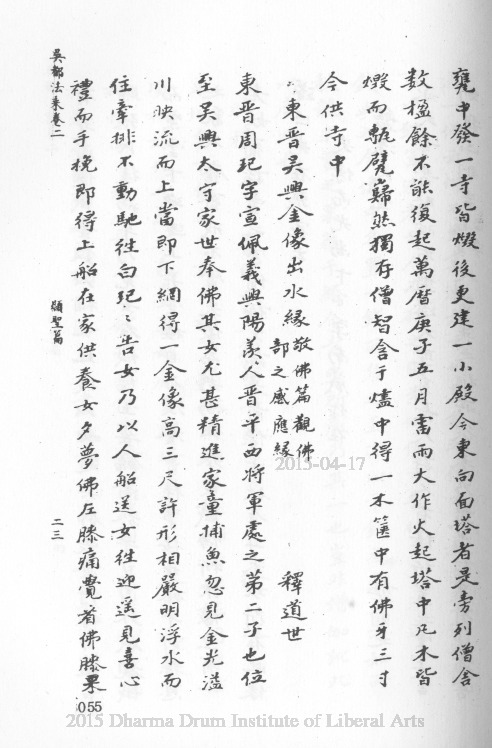 甕中發一寺皆燬後更建一小殿今東向面塔者是旁列僧舍
数楹餘不能復起萬曆庚子五月雷雨大作火起塔中凡木皆
燬而甎甓巋然獨存僧智含于燼中得一木篋中有佛牙三寸
今供寺中
東晋吴興金像出水緣敬佛篇觀佛部之感應緣 釋道世
東晋周玘字宣佩義興陽羨人晋平西將軍處之第二子也位
至吴興太守家世奉佛其女尤甚精進家童捕魚忽見金光溢
川映流而上當即下網得一金像高三尺許形相嚴明浮水而
住牽排不動馳往白玘〻告女乃以人船送女往迎遥見喜心
禮而手挽即得上船在家供養女夕夢佛左膝痛覺看佛膝果
吴都法乘卷二
顯聖篇
二三
055
2013-04-17
2015 Dharma Drum Institute of Liberal Arts